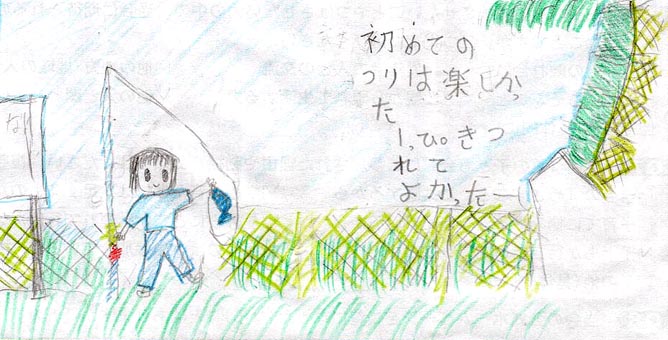 初めての
つりは楽しかっ
た
1っぴきつ
れて
よかったー
な